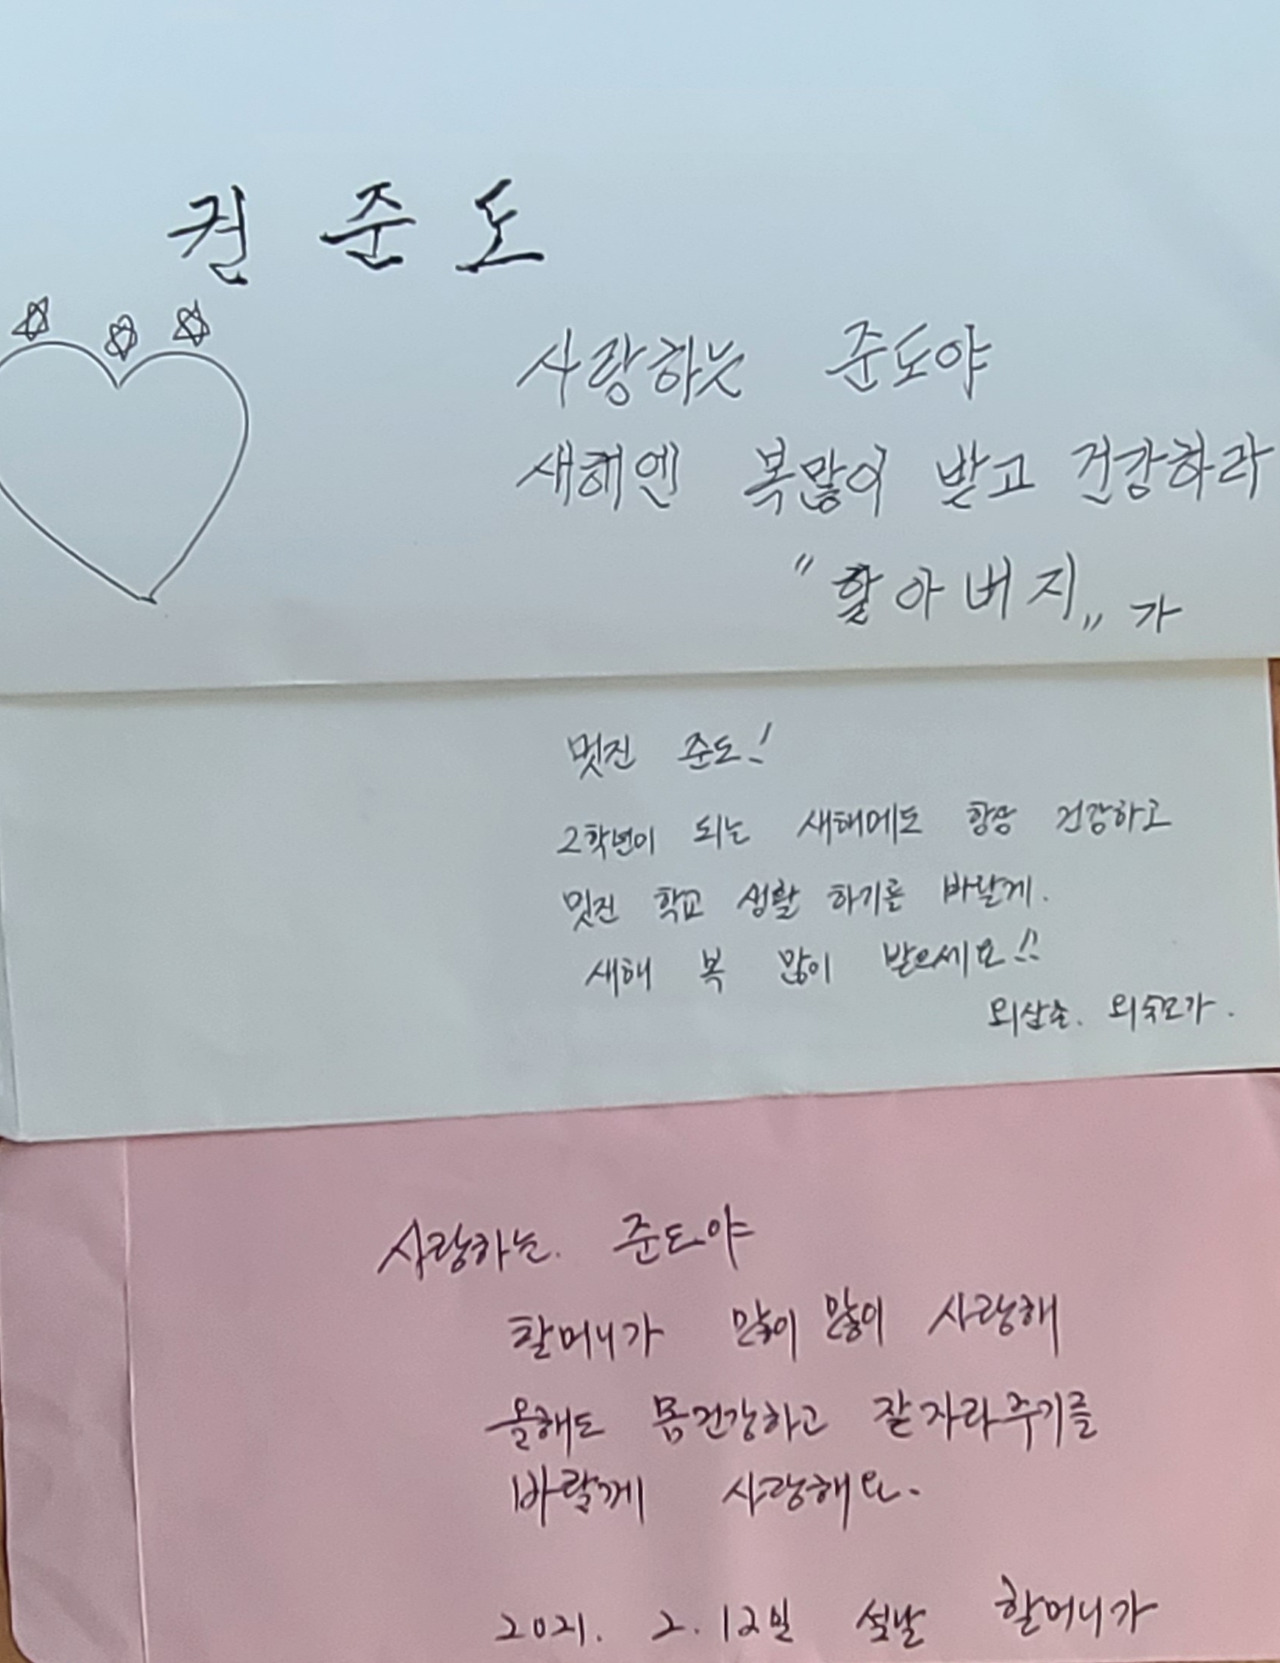 권준도
사랑하는 준도야
새해엔 복많이 받고 건강하라
"할아버지" 가
멋진 준도!
2학년이 되는 새해에도 항상 건강하고
멋진 학교 생활 하기를 바랄게.
새해 복 많이 받으세요!!
외삼촌. 외숙모가.
사랑하는. 준도야
할머니가 많이 많이 사랑해
올해도 몸건강하고 잘자라주기를
바랄께 사랑해요.
2021. 2. 12일 설날 할머니가